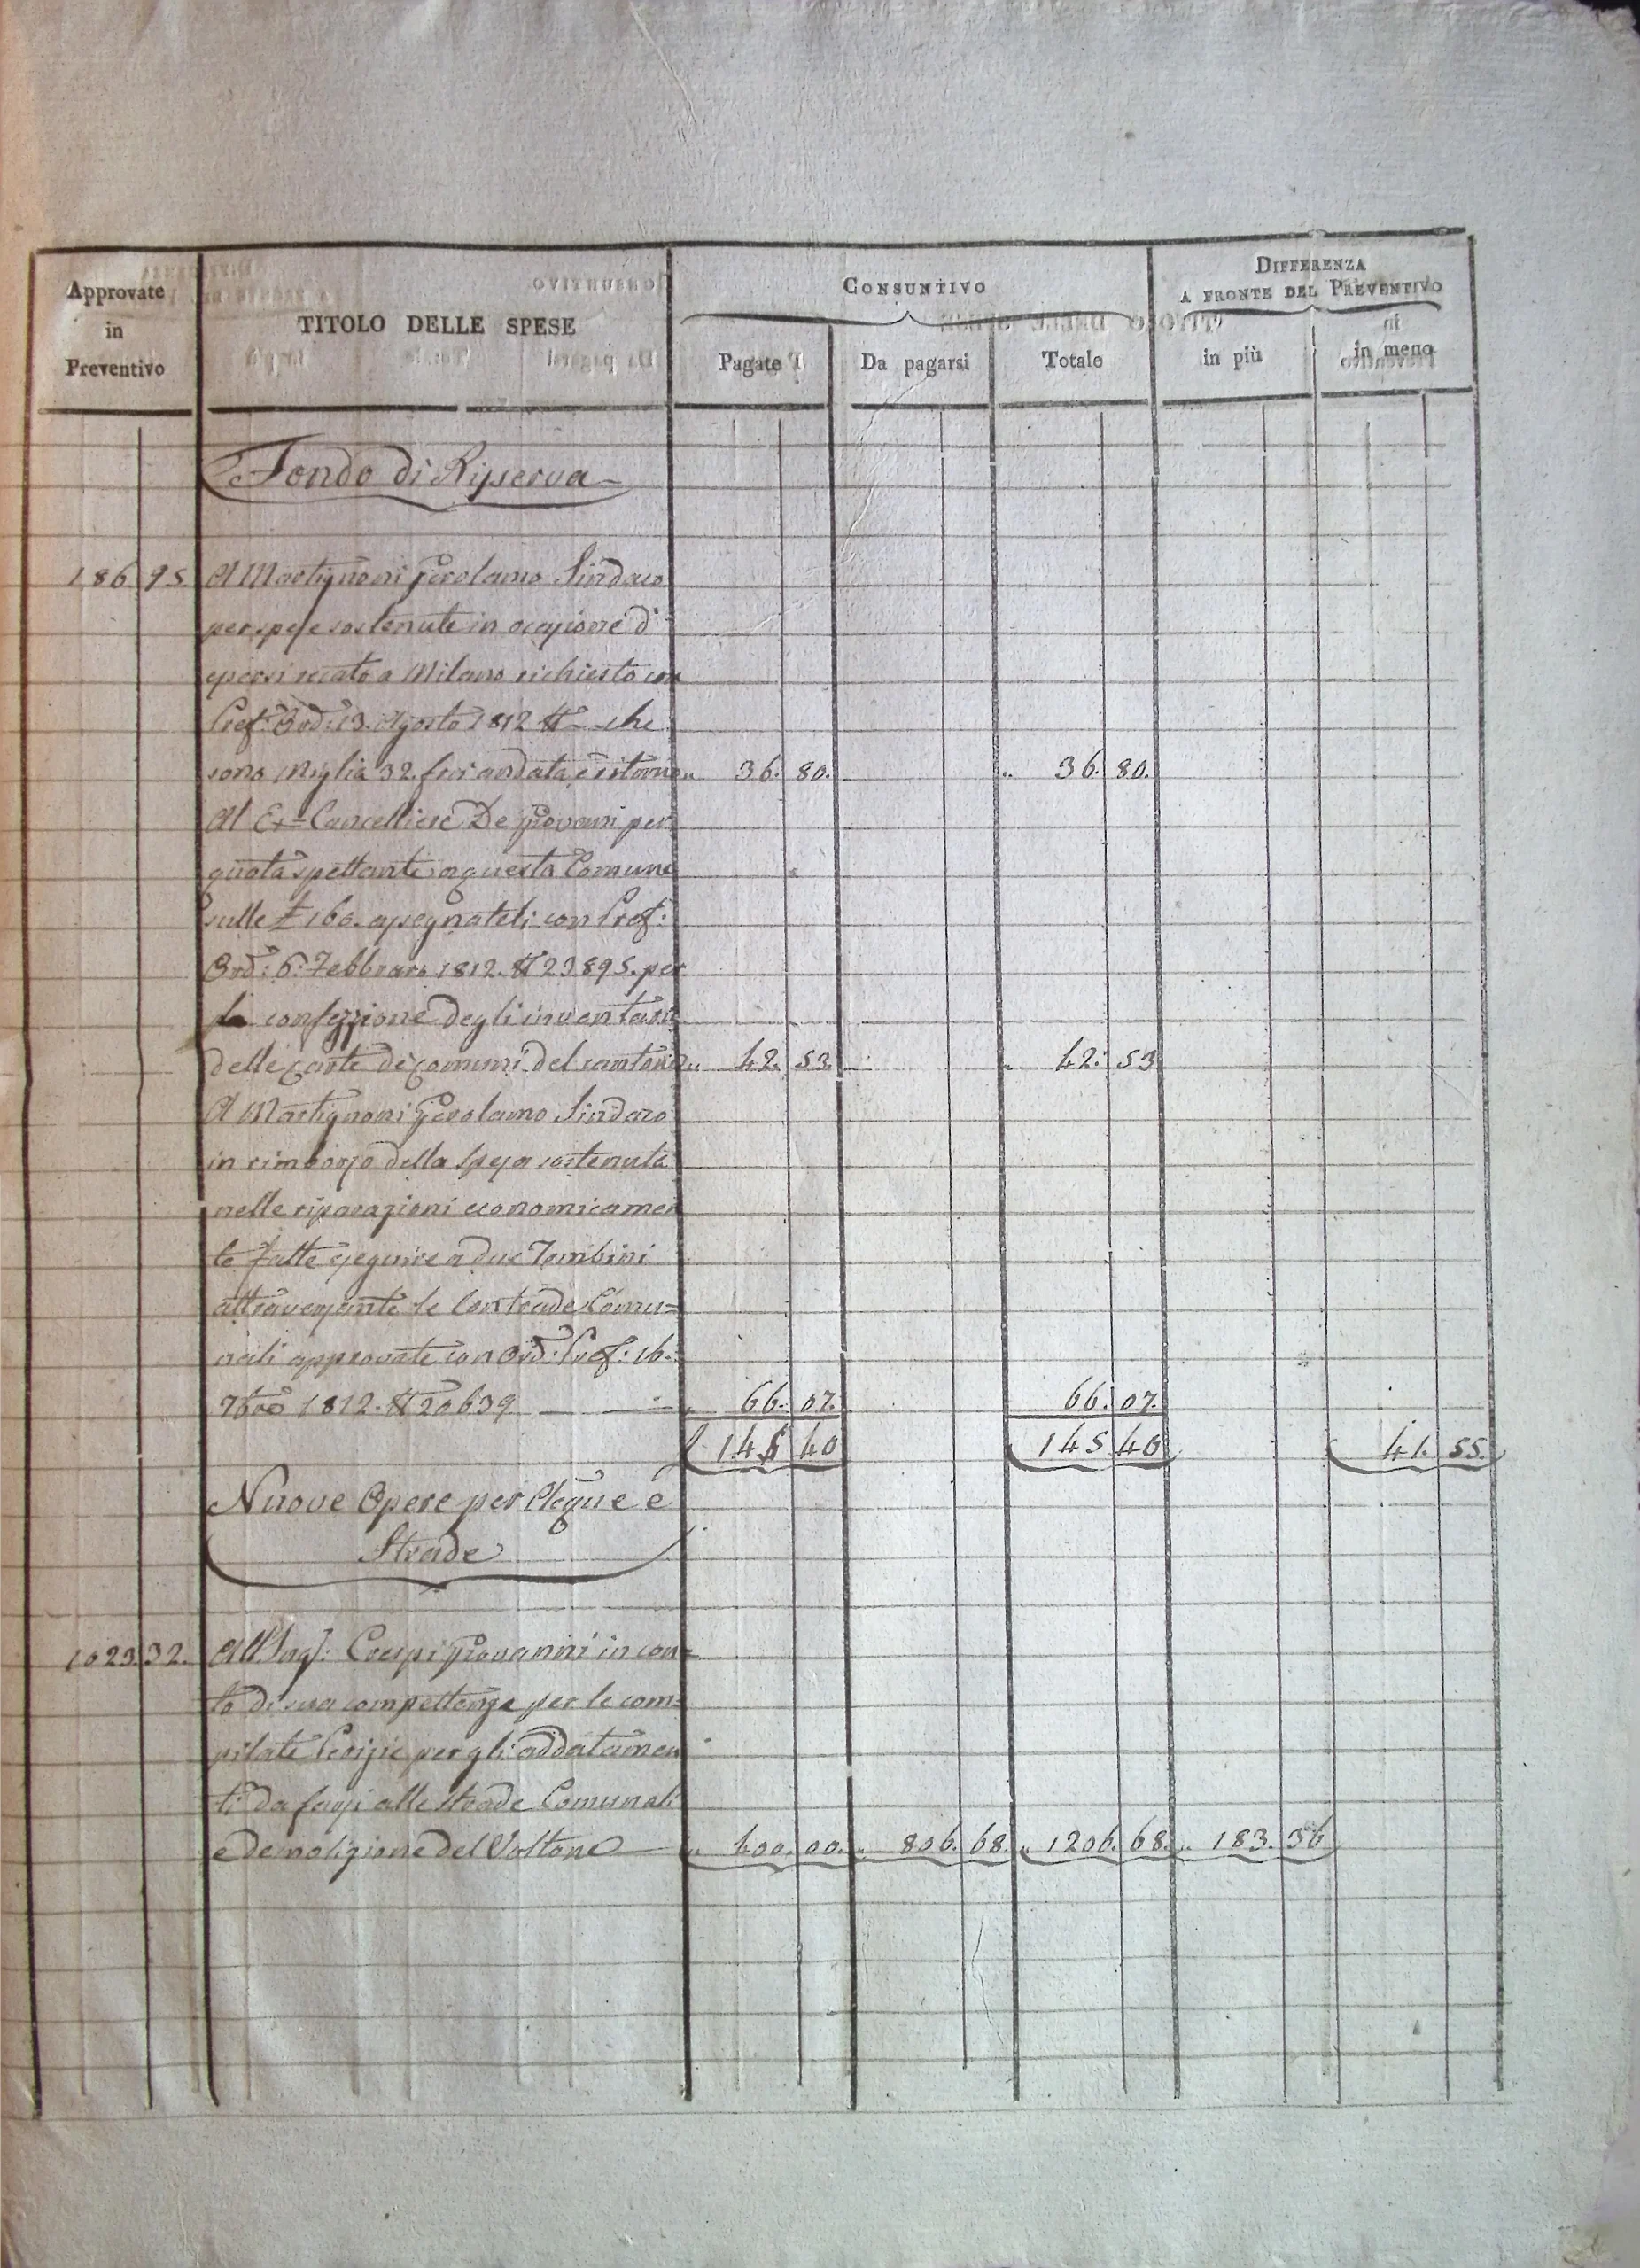 Approvate
in
Preventivo
TITOLO DELLE SPESE
CONSUNTIVO
Pagate
Da pagarsi
Totale
DIFFERENZA
A FRONTE DEL PREVENTIVO
in più
in meno
Fondo di Risserva
186 95 A Martignoni Gerolamo Sindaco
per spese sostenute in occasione d'
essersi recato a Milano richiesto con
Pref: Ord: 13. Agosto 1812 N che
sono Miglia 32. fra andata e ritorno " 36. 80. " 36. 80.
Al Ex=Cancelliere De Giovani per
quota spettante a questa Comune
sulle £ 160. assegnateli con Pref:
Ord: 6: Febbraro 1812. N 23895. per
la confezzione degli inventari
delle carte de comuni del cantone " 42. 53. " 42: 53
A Martignoni Gerolamo Sindaco
in rimborso della spesa sostenuta
nelle riparazioni economicamen
te fatte eseguire a due Tombini
attraversante le Contrade Comu=
nali approvate con Ord: Pref: 16.
7bre 1812. N 20639 " 66. 07. 66. 07.
145 40 145 40 41. 55.
Nuove Opere per Acque e
Strade
1023. 32. All'Ing: Crespi Giovanni in con=
to di sua compettenza per le com=
pilate Perizie per gli addatamen
ti da farsi alle strade Comunali
e demolizione del Voltone " 400. 00. " 806. 68. " 1206. 68. " 183. 36